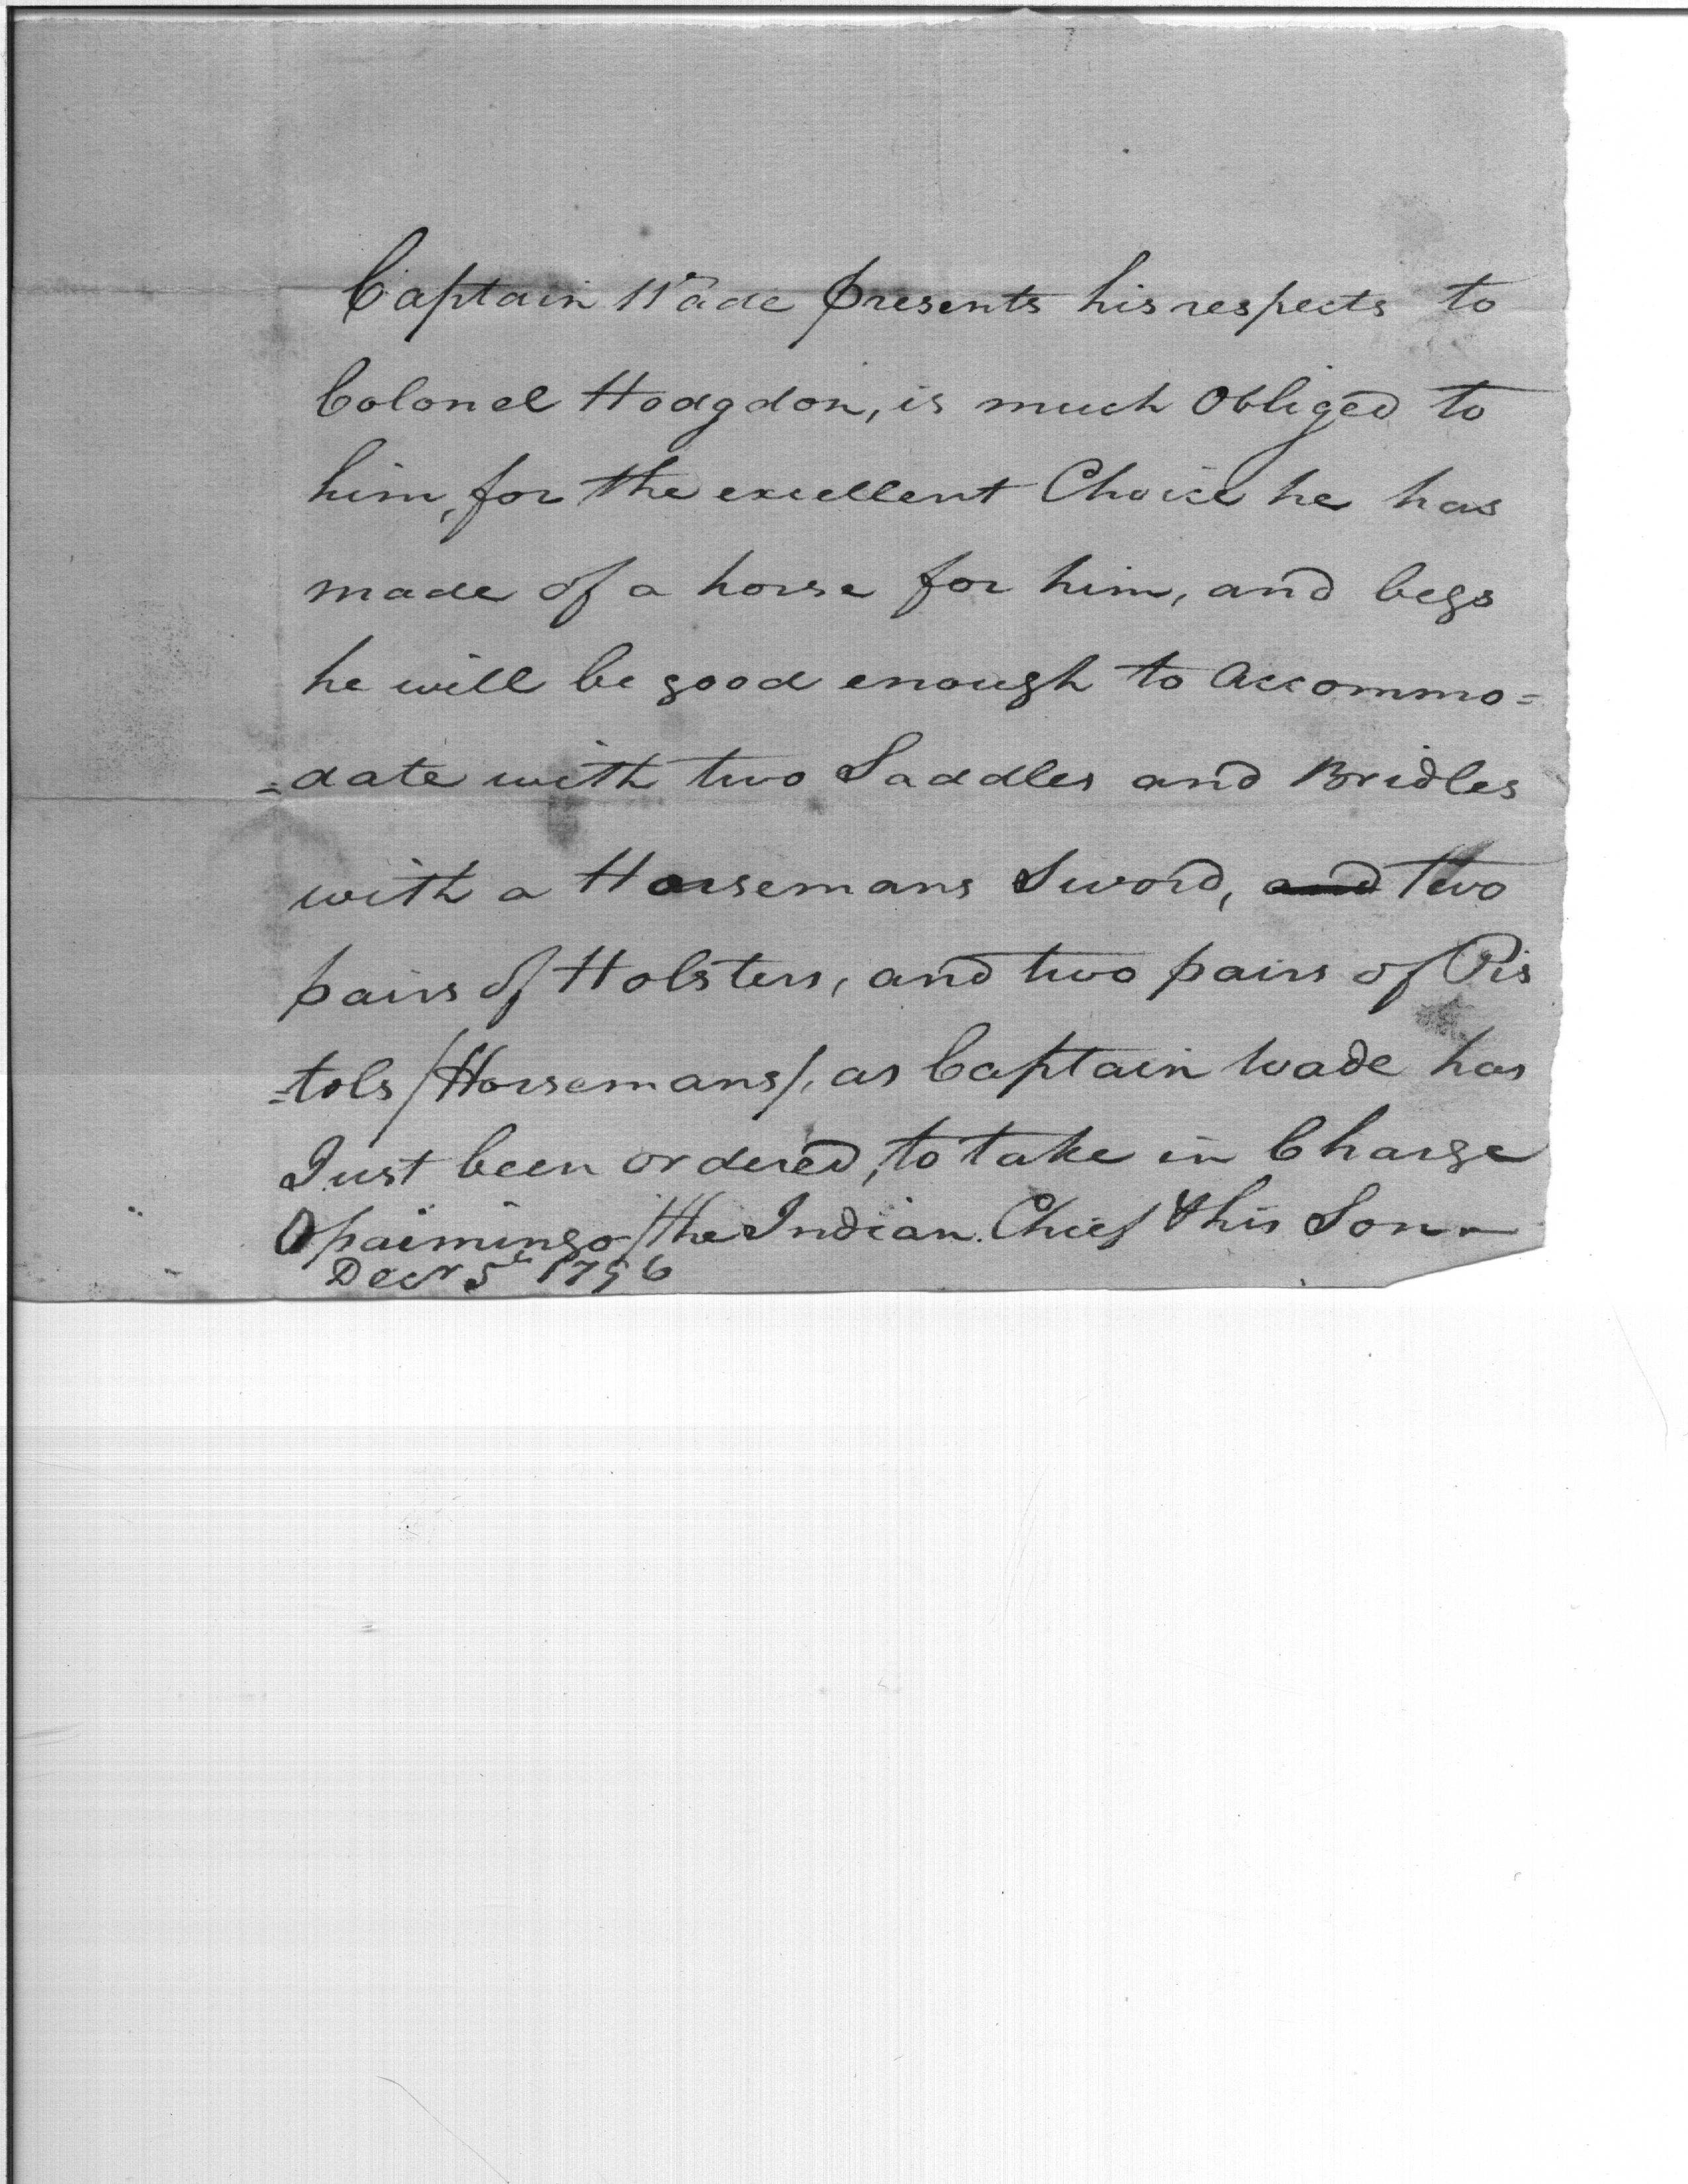 Captain Wade presents his respects to
Colonel Hodgdon, is much Obliged to
him, for the excellent Choice he has
made of a horse for him, and begs
he will be good enough to Accommo=
=date with two Saddles and Bridles
with a Horsemans Sword, and two
pairs of Holsters, and two pairs of Pis
=tols /Horsemans/, as Captain Wade has
Just been ordered, to take in Charge
Opaimingo /the Indian Chief & his Son—
Decr 5th 1796